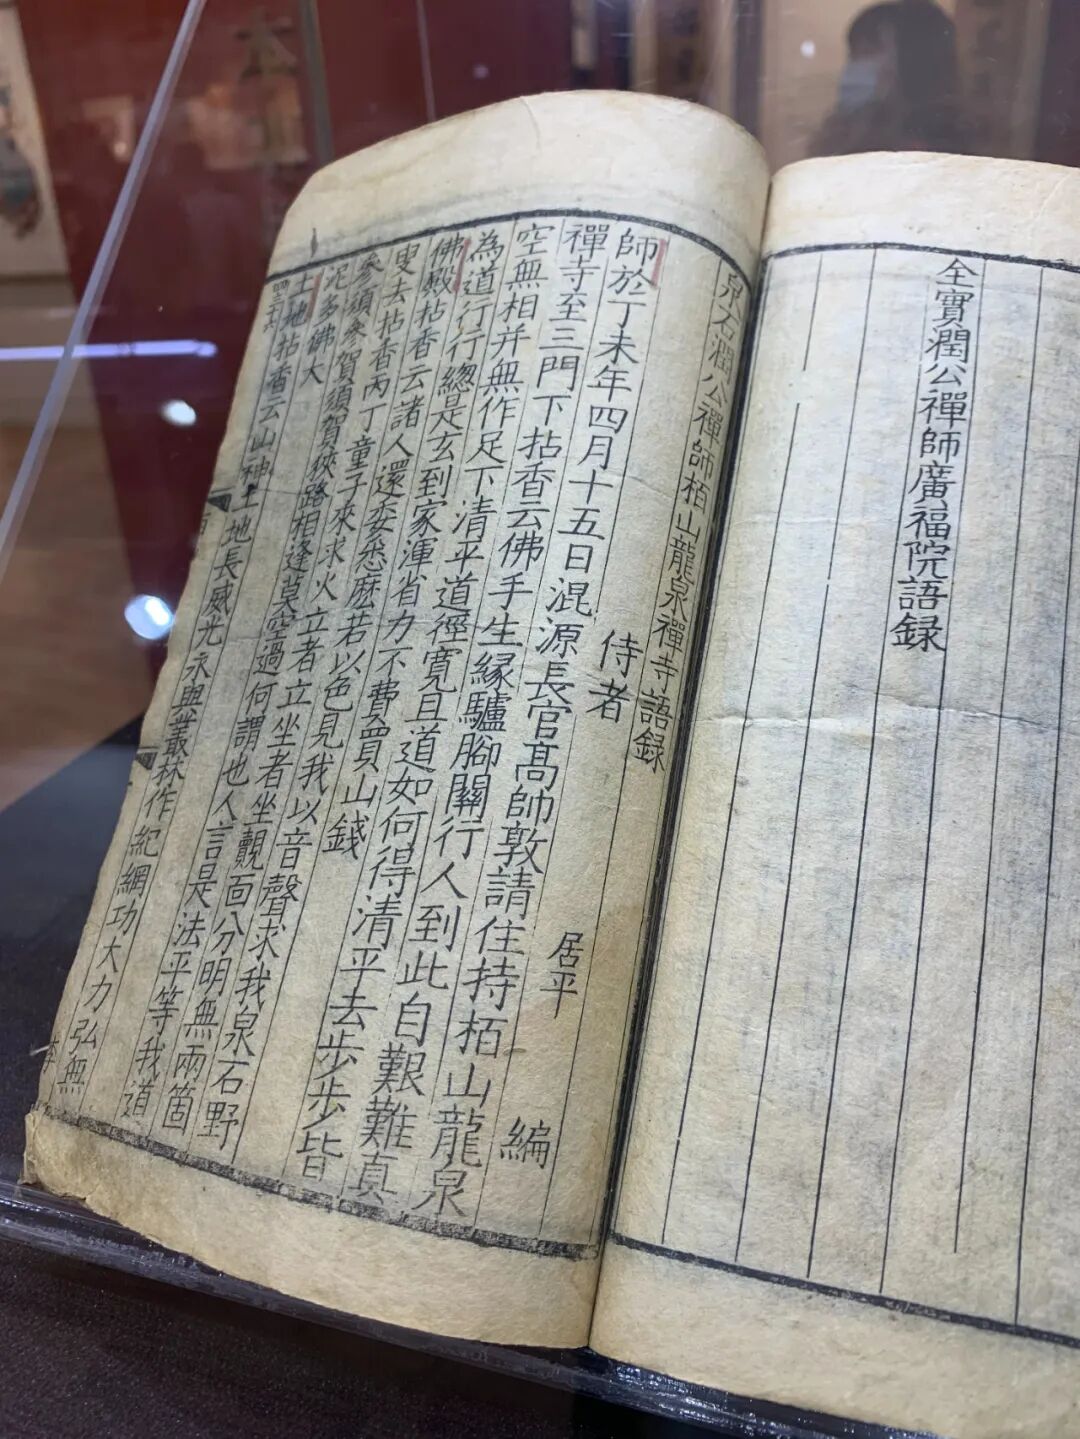 全實潤公禪師廣福院語録
泉石潤公禪師栢山龍泉禪寺語録
侍者 居平 編
師於丁未年四月十五日混源長官髙帥敦請住持栢山龍泉
禪寺至三門下拈香云佛手生緣驢脚關行人到此自艱難真
空無相并無作足下清平道徑寬且道如何得清平去步步皆
為道行行總是玄到家渾省力不費買山錢
佛殿拈香云諸人還委悉麽若以色見我以音聲求我泉石野
叟去拈香丙丁童子來求火立者立坐者坐覿面分明無兩箇
參須參賀須賀狹路相逢莫空過何謂也人言是法平等我道
泥多佛大
土地拈香云山神土地長威光永興叢林作紀綱功大力弘無